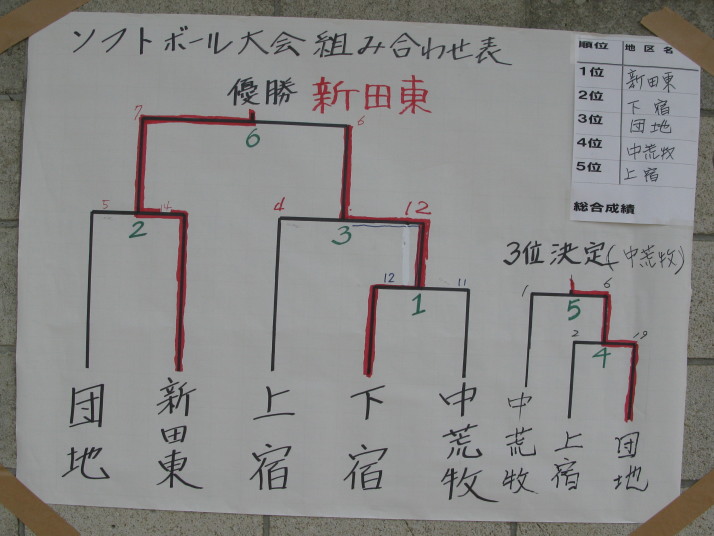 ソフトボール大会組み合わせ表
優勝 新田東
7 6
6
5 14 4 12
2 3
12 11
1
団地 新田東 上宿 下宿 中荒牧
順位 地区名
1位 新田東
2位 下宿
3位 団地
4位 中荒牧
5位 上宿
総合成績
3位決定(中荒牧)
1 6
5
2 19
4
中荒牧 上宿 団地